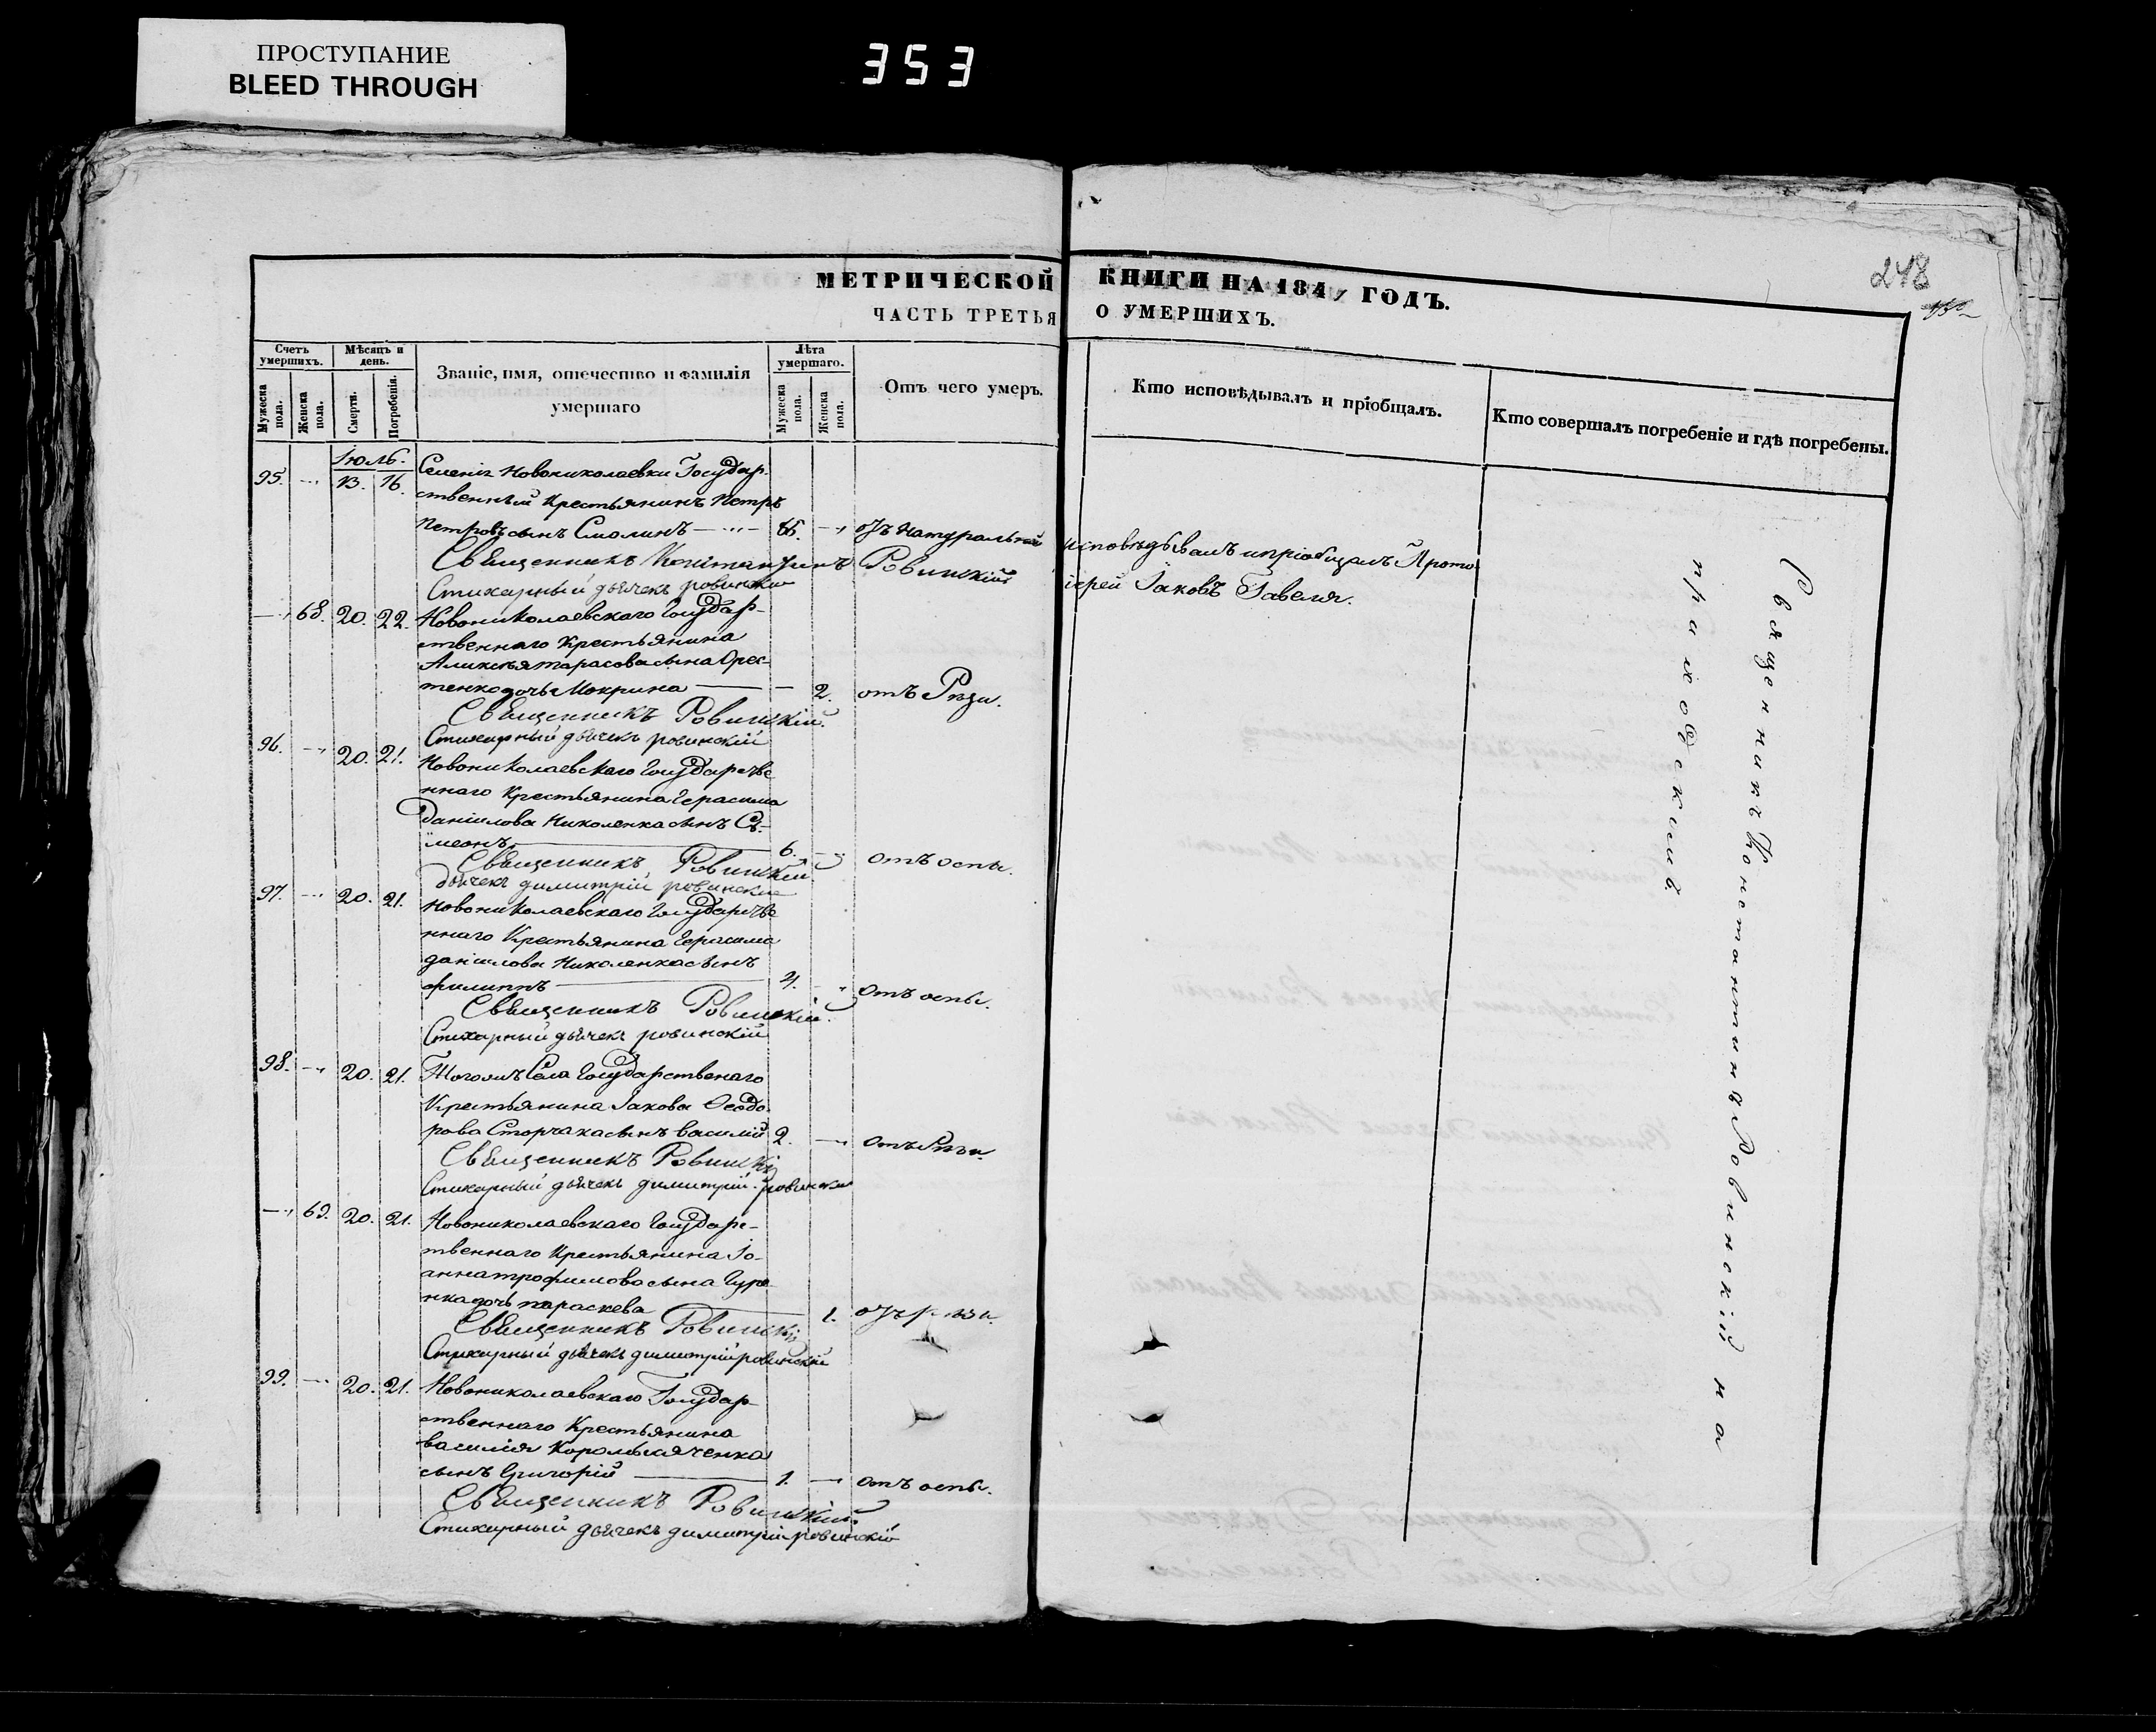 ПРОСТУПАНИЕ
BLEED THROUGH
353
248
МЕТРИЧЕСКОЙ КНИГИ НА 184 ГОДЪ.
ЧАСТЬ ТРЕТЬЯ О УМЕРШИХЪ.
Счетъ умершихъ.
Мужеска пола.
Женска пола.
Мѣсяцъ и день.
Смерти.
Погребенія.
Званіе, имя, отечество и фамилія умершаго
Лѣта умершаго.
Мужеска пола.
Женска пола.
Отъ чего умеръ.
Кто исповѣдывалъ и пріобщалъ.
Кто совершалъ погребеніе и гдѣ погребены.
Іюль.
95. 13. 16. Селенія Новониколаевки Государ-
ственный Крестьянинъ Петръ
Петровъ сынъ Смолинъ отъ натуральной Исповѣдывалъ и пріобщалъ Прото-
Священникъ Константинъ Ровинскій іерей Іаковъ Гавеля.
Стихарный дьячекъ ровинскій
68. 20. 22. Новониколаевскаго Государ-
ственнаго Крестьянина
Аликсѣя тарасова сына Орес-
тенко дочь Мокрина 2. отъ Рѣзи.
Священникъ Ровинскій.
Стихарный дьячекъ ровинскій
96. 20. 21. Новониколаевскаго Государстве
ннаго Крестьянина Герасима
Даніилова Николенка сынъ Сѵ-
меонъ. 6. отъ оспы.
Священникъ Ровинскій
дьячекъ димитрій ровинскій
97. 20. 21. Новониколаевскаго Государстве
ннаго Крестьянина Герасима
даніилова Николенка сынъ
филиппъ 4. отъ оспы.
Священникъ Ровинскій.
Стихарный дьячекъ ровинскій
98. 20. 21. Тогожъ Села Государственаго
Крестьянина Іакова Ѳеодо-
рова Сторчака сынъ василій 2. отъ
Священникъ Ровинскій
Стихарный дьячекъ димитрій ровинскій
69. 20. 21. Новониколаевскаго Государс-
твеннаго Крестьянина Іо-
анна трофимова сына
нка дочь параскева 1. отъ рѣзи.
Священникъ Ровинскій
Стихарный дьячекъ димитрій ровинскій
99. 20. 21. Новониколаевскаго Государ-
ственнаго Крестьянина
василія
сынъ Григорій 1. отъ оспы.
Священникъ Ровинскій
Стихарный дьячекъ димитрій ровинскій
Священникъ Константинъ Ровинскій на
приходскомъ